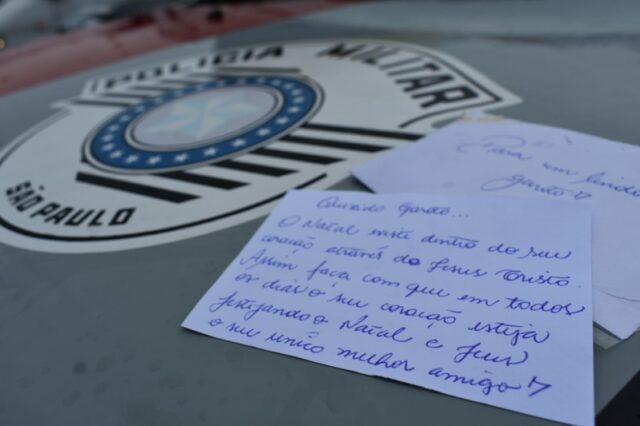 POLÍCIA MILITAR
SÃO PAULO
Para um lindo
garoto
Querido Garoto...
O Natal existe dentro do seu
coração através de Jesus Cristo.
Assim faça com que em todos
os dias o seu coração esteja
festejando o Natal e Jesus
o seu único melhor amigo